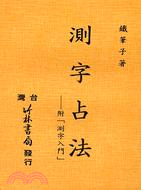 鐵筆子著
測字占法
——附「測字入門」
台灣
竹林書局
發行